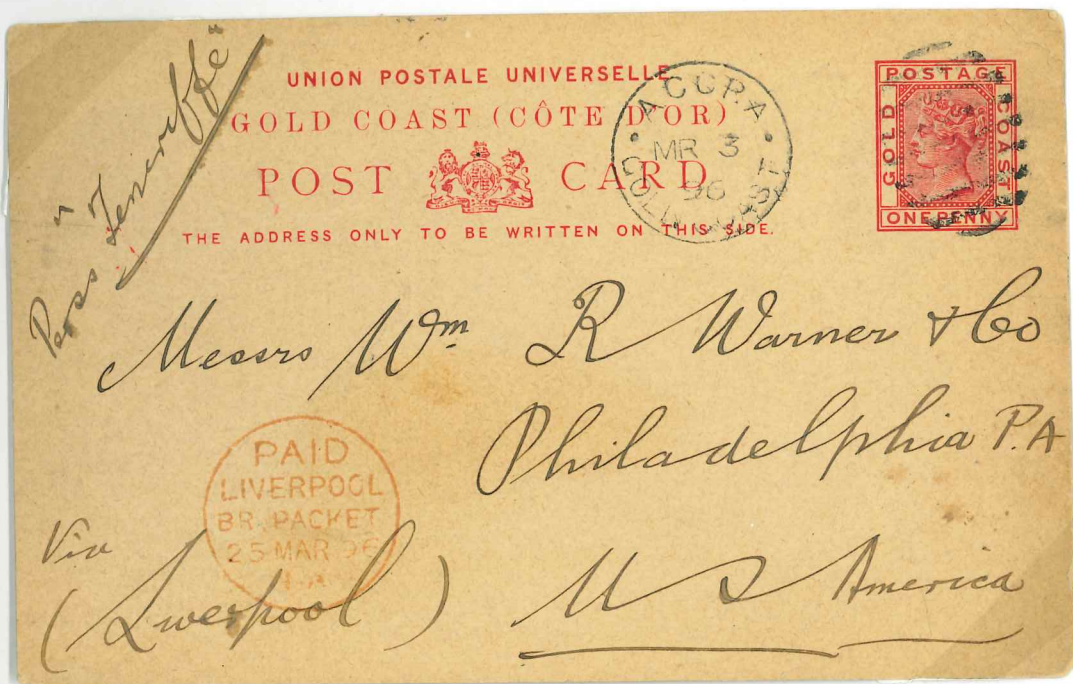 Per ss "Teneriffe"
UNION POSTALE UNIVERSELLE
GOLD COAST (CÔTE D'OR)
POST CARD
THE ADDRESS ONLY TO BE WRITTEN ON THIS SIDE.
ACCRA
MR 3
96
GOLD COAST
POSTAGE
GOLD
COAST
ONE PENNY
Messrs Wm R Warner & Co
Philadelphia P.A
PAID
LIVERPOOL
BR. PACKET
25 MAR 96
Via
(Liverpool)
U S America